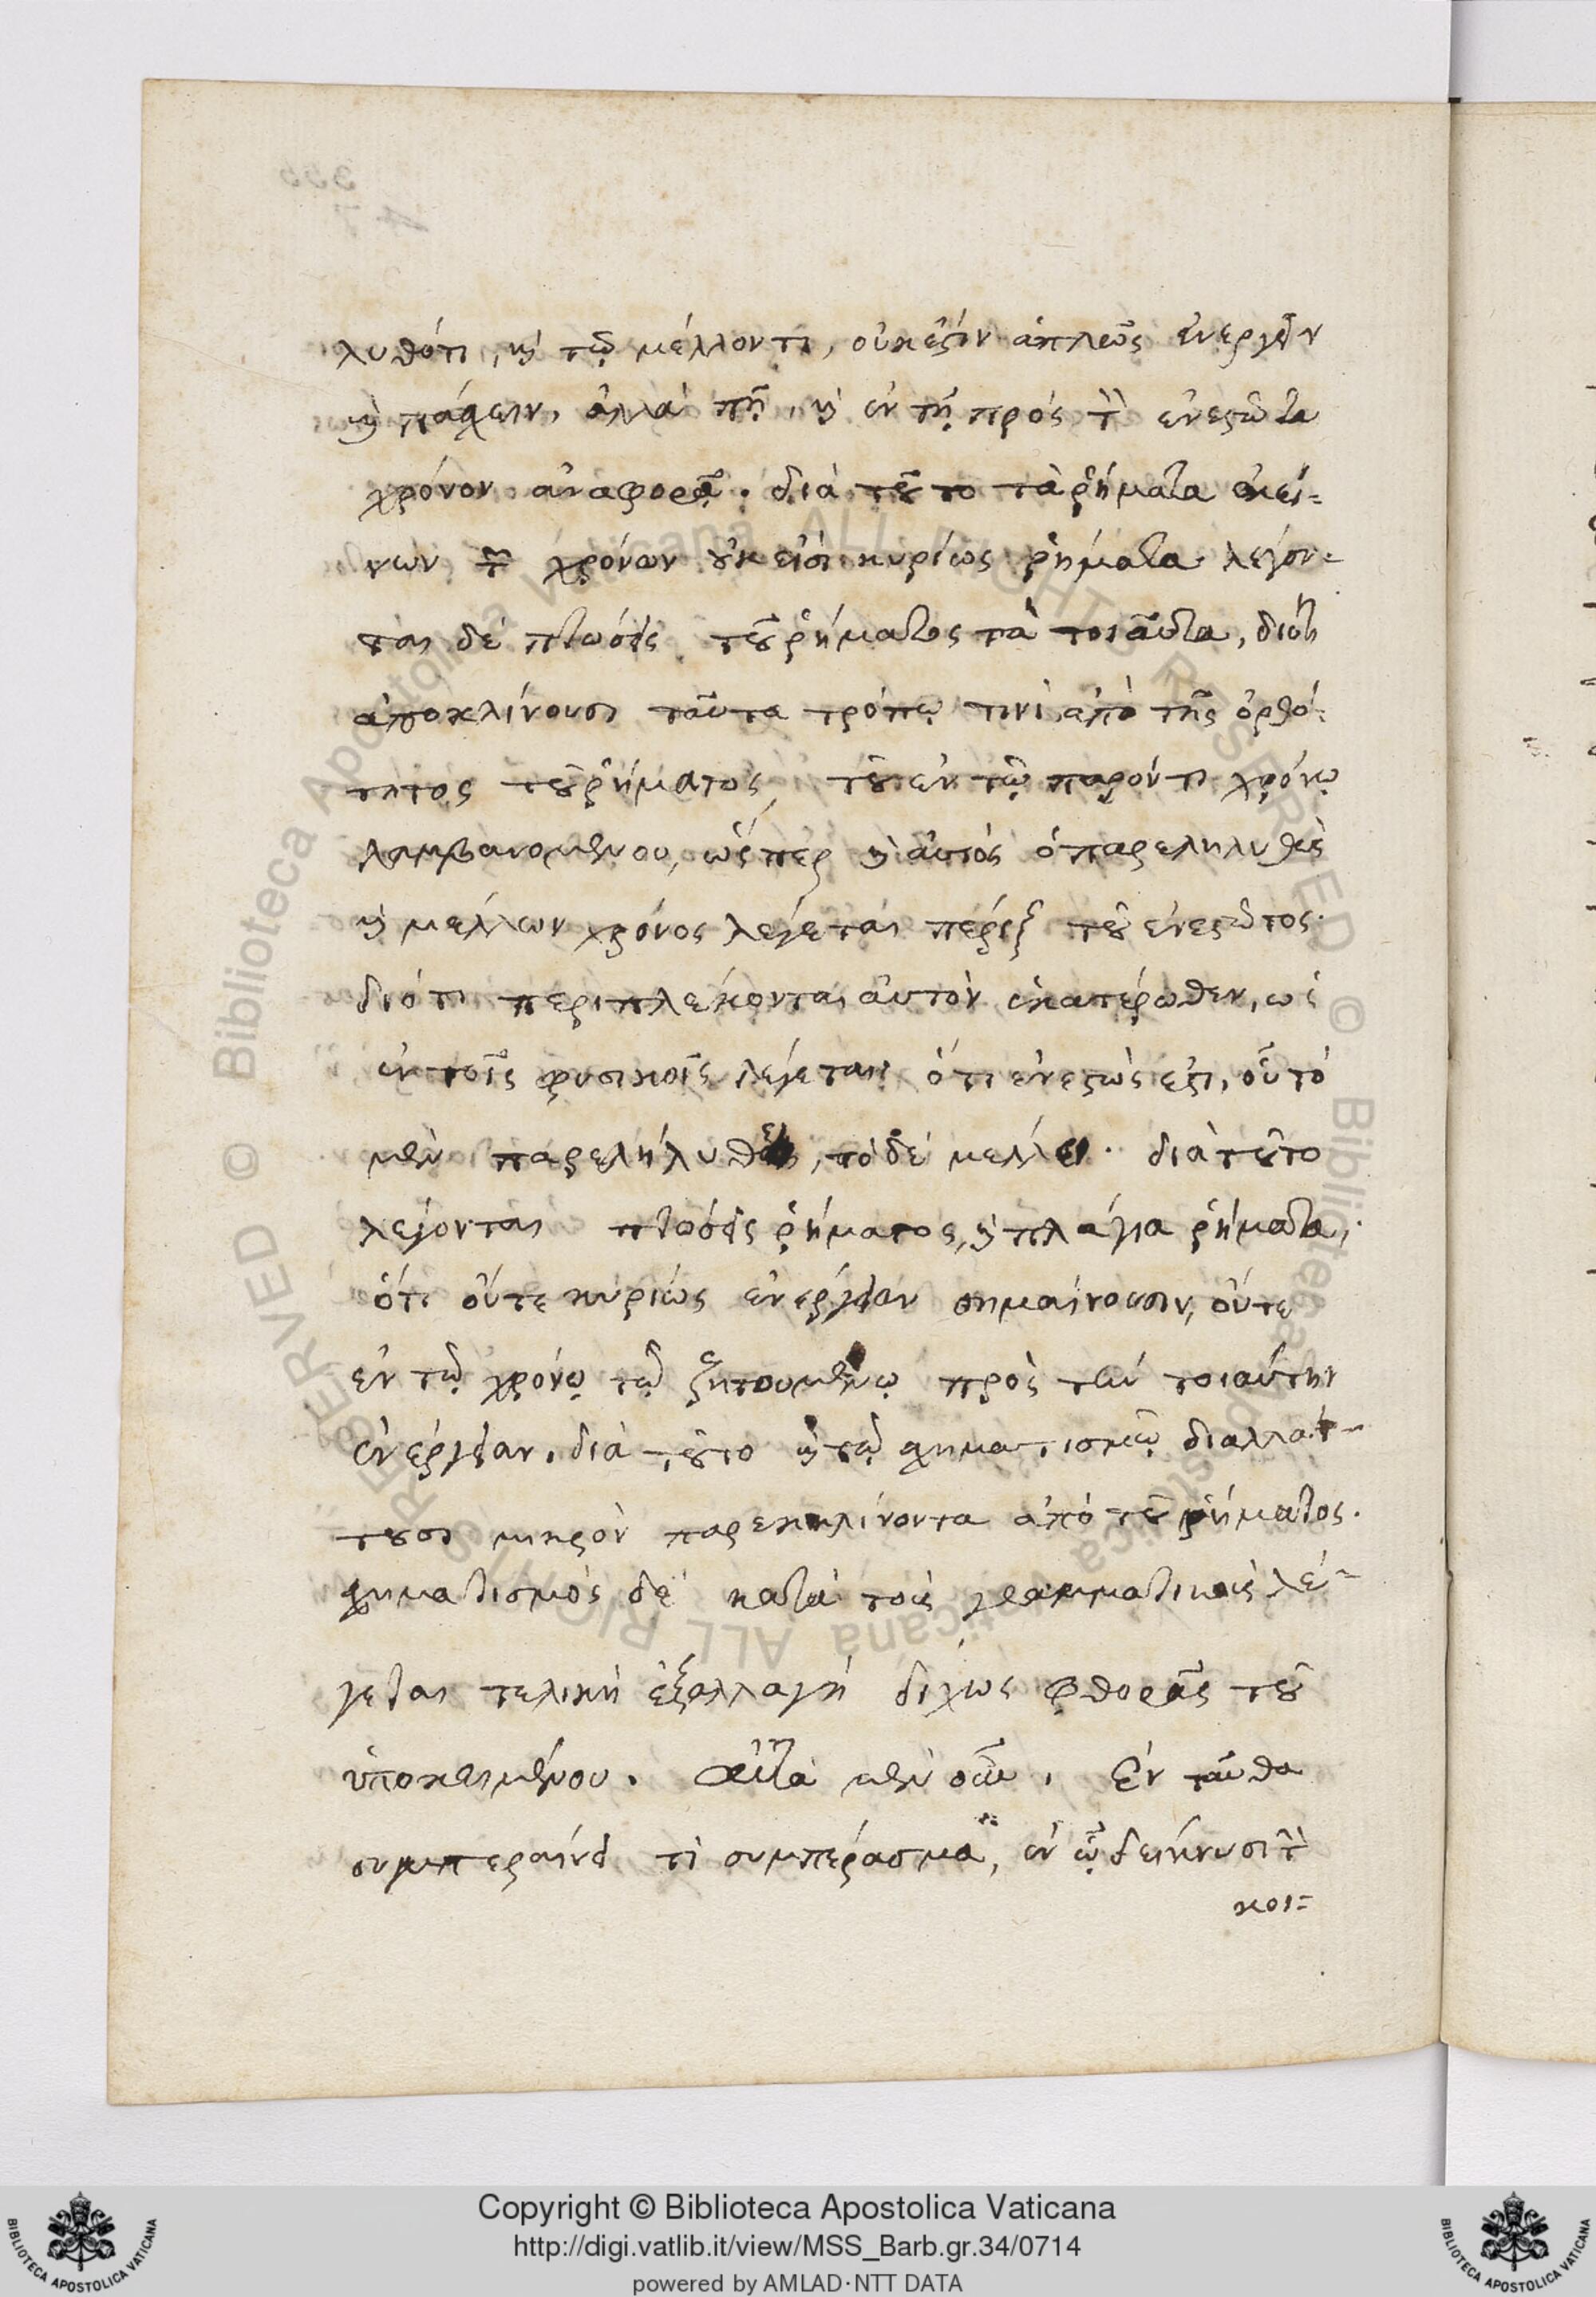 λυθότι, καὶ τῷ μέλλοντι, οὐκέστιν ἁπλῶς ἐνεργεῖν
καὶ πάσχειν, ἀλλὰ πῇ, καὶ ἐν τῇ πρὸς τὸν ἐνεστῶτα
χρόνον ἀναφορᾷ. διὰ τοῦτο τὰ ῥήματα ἐκεί=
νων τῶν χρόνων οὐκ εἰσὶ κυρίως ῥήματα. λέγον=
ται δὲ πτώσεις τοῦ ῥήματος τὰ τοιαῦτα, διότι
ἀποκλίνουσι ταῦτα τρόπῳ τινὶ ἀπὸ τῆς ὀρθό=
τητος τοῦ ῥήματος, τοῦ ἐν τῷ παρόντι χρόνῳ
λαμβανομένου, ὥσπερ καὶ αὐτὸς ὁ παρεληλυθὼς
καὶ μέλλων χρόνος λέγεται πέριξ τοῦ ἐνεστῶτος.
διότι περιπλέκονται αὐτὸν ἑκατέρωθεν, ὡς
ἐν τοῖς φυσικοῖς λέγεται ὅτι ἐνεστώς ἐστι, οὗ τὸ
μὲν παρελήλυθεν, τὸ δὲ μέλλει. διὰ τοῦτο
λέγονται πτώσεις ῥήματος, καὶ πλάγια ῥήματα,
ὅτι οὔτε κυρίως ἐνέργειαν σημαίνουσιν, οὔτε
ἐν τῷ χρόνῳ τῷ ζητουμένῳ πρὸς τὴν τοιαύτην
ἐνέργειαν. διὰ τοῦτο καὶ τῷ σχηματισμῷ διαλλάτ=
τουσι μικρὸν παρεκκλίνοντα ἀπὸ τοῦ ῥήματος.
σχηματισμὸς δὲ κατὰ τοὺς γραμματικοὺς λέ=
γεται τελικὴ ἐξαλλαγὴ δίχως φθορᾶς τοῦ
ὑποκειμένου. Αὐτὰ μὲν οὖν. Ἐνταῦθα
συμπεραίνει τὶ συμπέρασμα, ἐν ᾧ δείκνυσι τὸ
κοι=
Copyright © Biblioteca Apostolica Vaticana
http://digi.vatlib.it/view/MSS_Barb.gr.34/0714
powered by AMLAD·NTT DATA